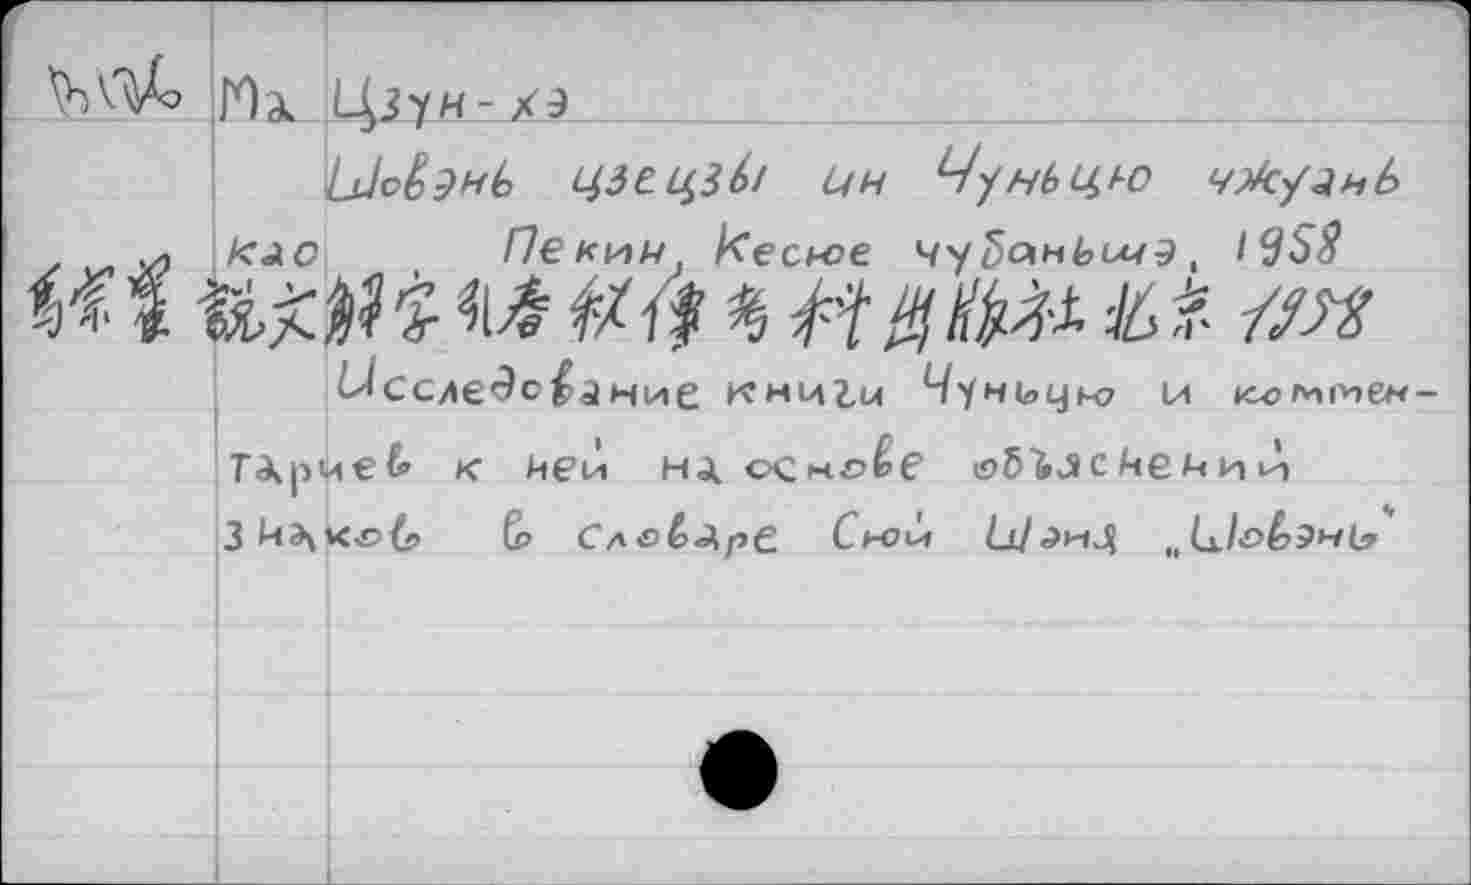 Ма Цзун-хэ
Шовэнь цзецзы ин Чуньцю чжуань
као Пекин, Кесюе чубаньшэ, 1958
說文解字引春秋傳考 科學出版社 北京 1958
Исследование книги Чуньцю и коммен-
тариев к ней на основе объяснений
знаков в словаре Сюй Шэня „Шовэнь"